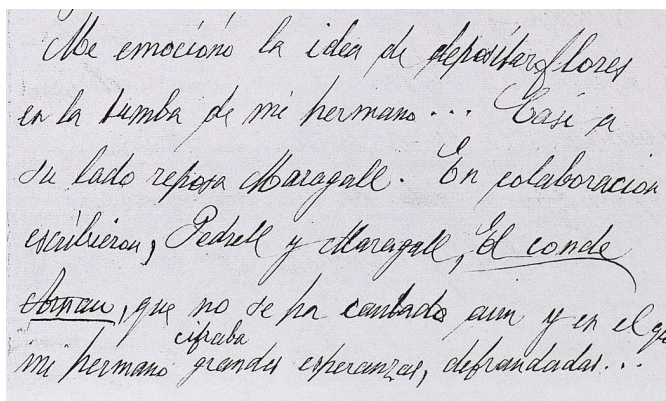 Me emocionó la idea de depositar flores
en la tumba de mi hermano... Casi a
su lado reposa Maragall. En colaboracion
escribieron, Pedrell y Maragall, El conde
Arnau, que no se ha cantado aun y en el que
cifraba
mi hermano grandes esperanzas, defraudadas...